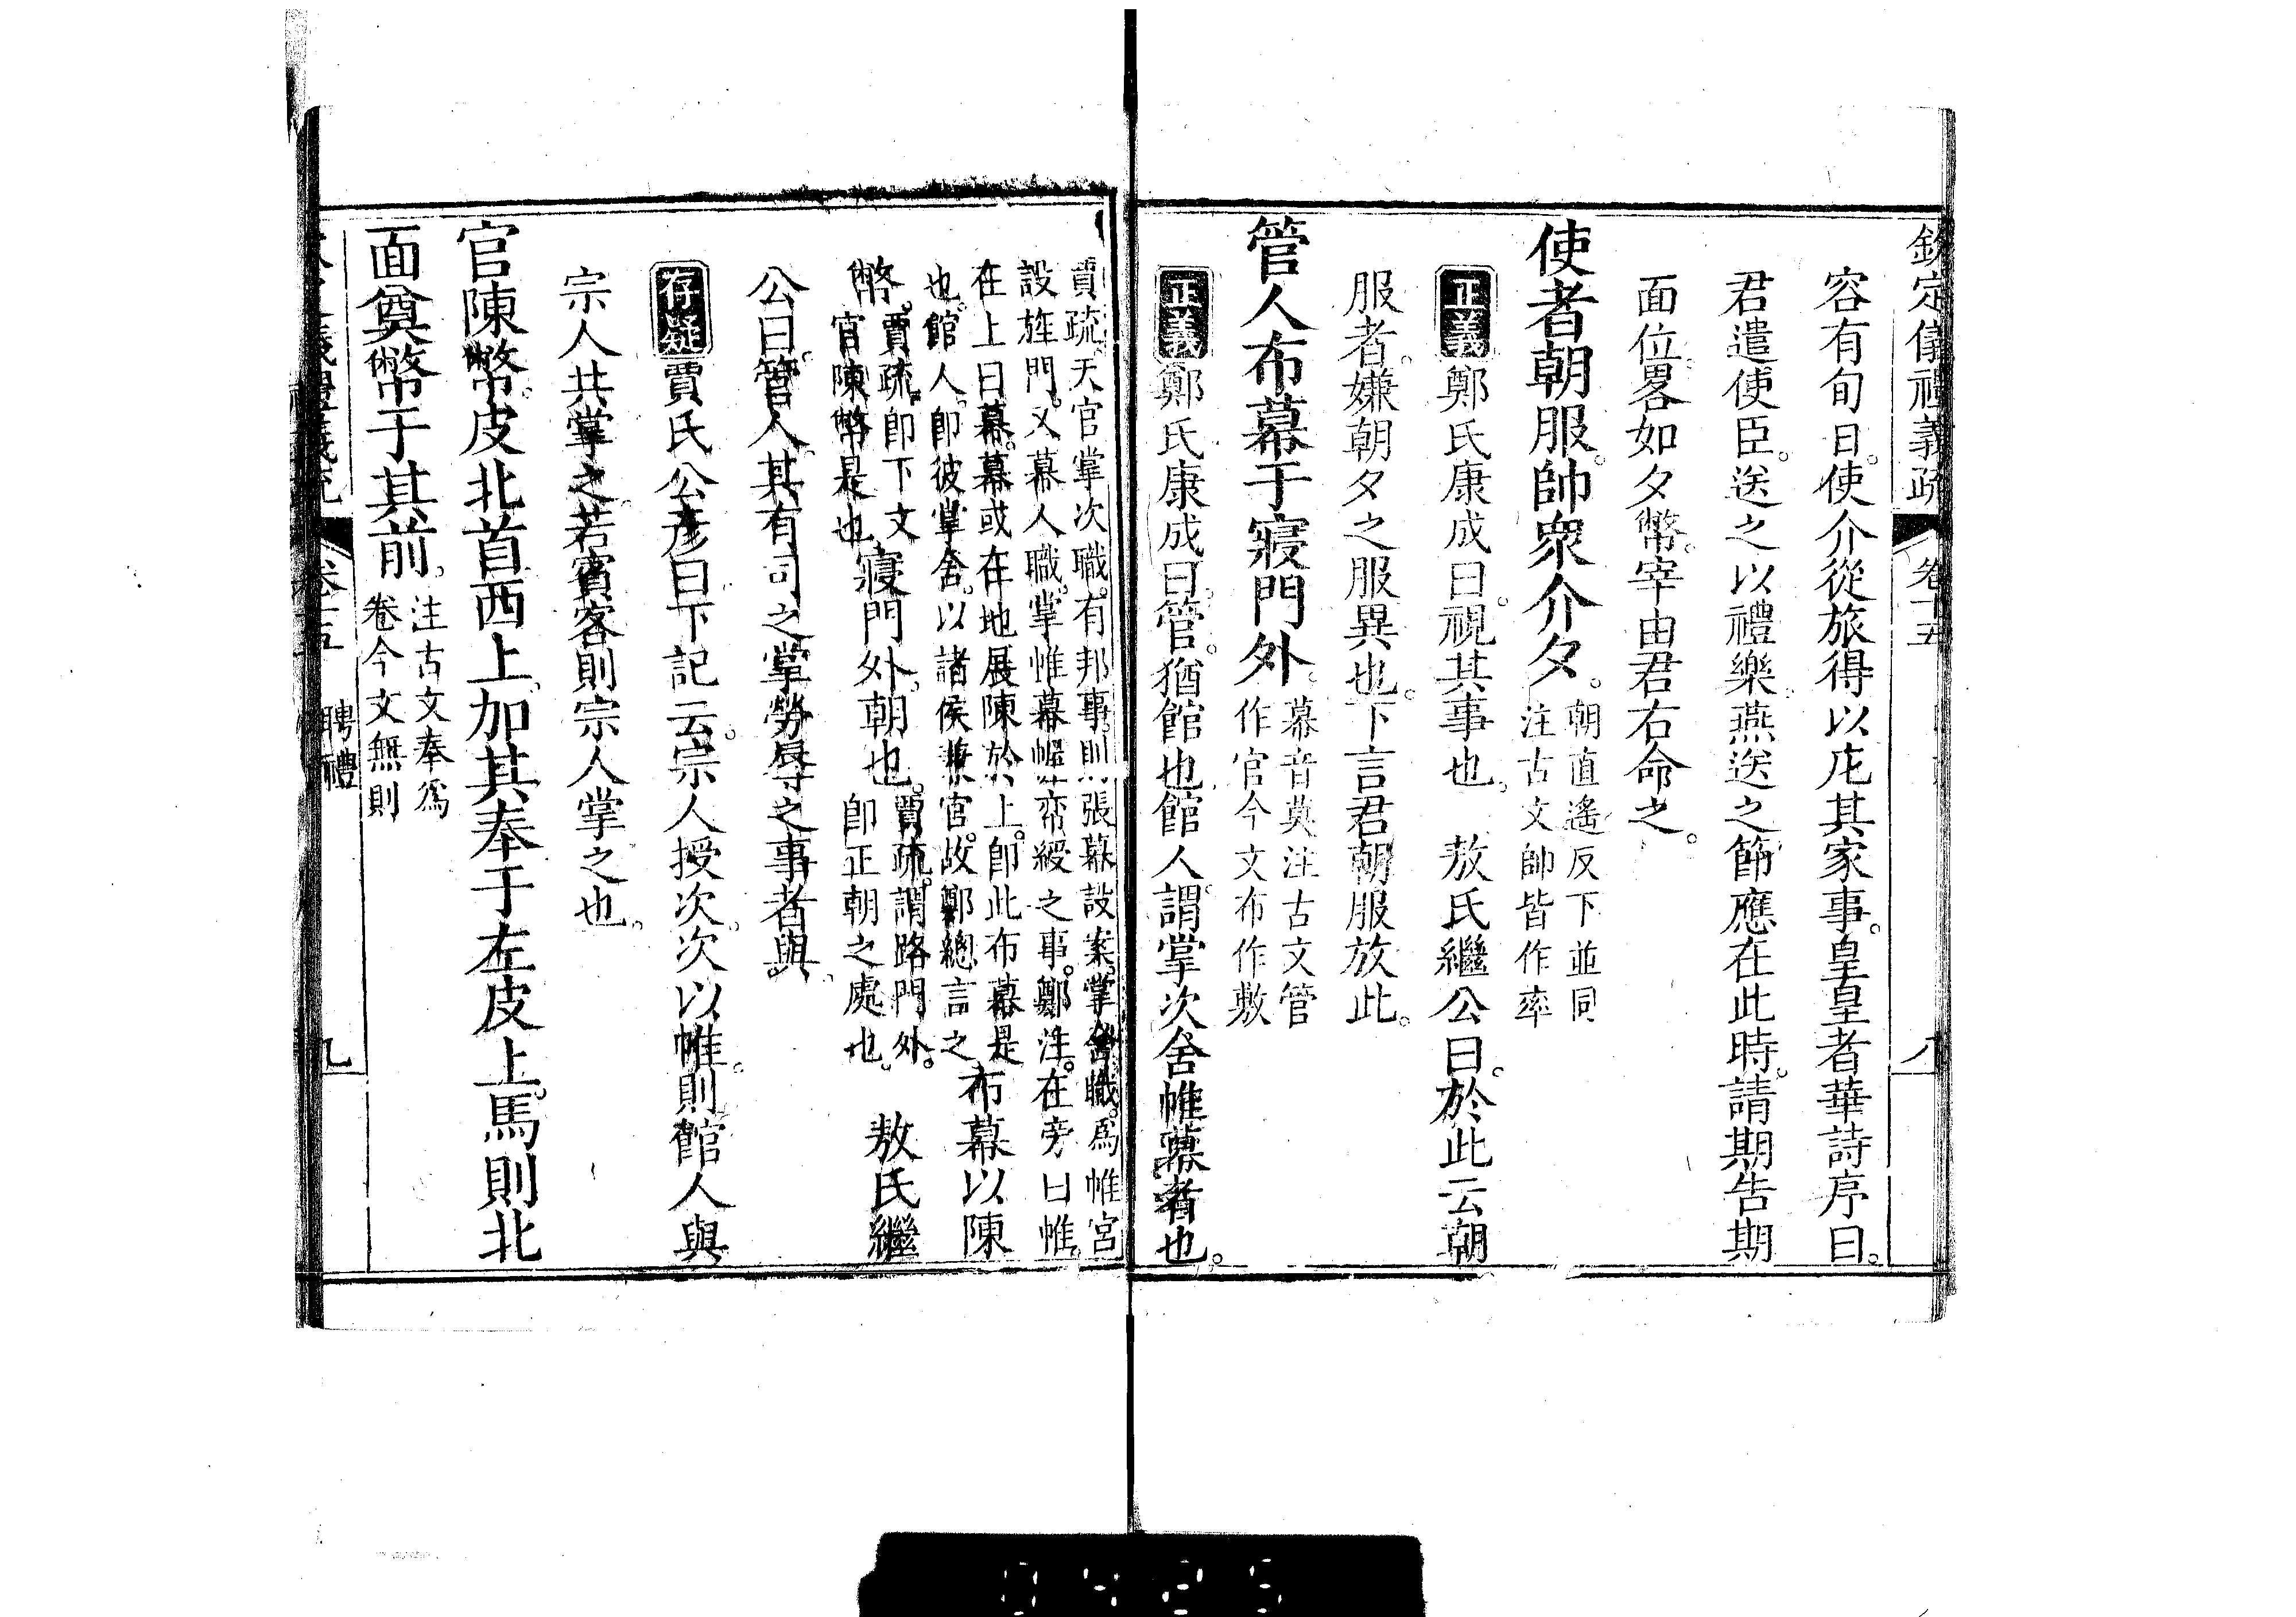 欽定儀禮義疏 卷十五 八
容有旬日。使介從旅得以庀其家事。皇皇者華詩序曰。
君遣使臣。送之以禮樂。燕送之節。應在此時。請期告期
面位畧如夕幣。宰由君右命之。
使者朝服。帥眾介夕。朝直遙反下並同
注古文帥皆作率
正義鄭氏康成曰。視其事也。 敖氏繼公曰。於此云朝
服者。嫌朝夕之服異也。下言君朝服放此。
管人布幕于寢門外。幕音莫注古文管
作官今文布作敷
正義鄭氏康成曰。管。猶館也。館人。謂掌次舍帷幕者也。
賈疏。天官掌次職。有邦事。則張幕設案。掌舍職。爲帷宮
設旌門。又幕人職。掌帷幕幄帟綬之事。鄭注。在旁曰帷。
在上曰幕。幕或在地展陳於上。卽此布幕是
也。館人。卽彼掌舍。以諸侯兼官。故鄭總言之 布幕以陳
幣。賈疏。卽下文
官陳幣是也 寢門外。朝也。賈疏。謂路門外。
卽正朝之處也。 敖氏繼
公曰。管人。其有司之掌勞辱之事者與。
存疑賈氏公彥曰。下記云。宗人授次。次以帷。則館人與
宗人共掌之。若賓客則宗人掌之也。
官陳幣。皮北首西上。加其奉于左皮上。馬則北
面奠幣于其前。注古文奉爲
卷今文無則
卷十五 聘禮 九